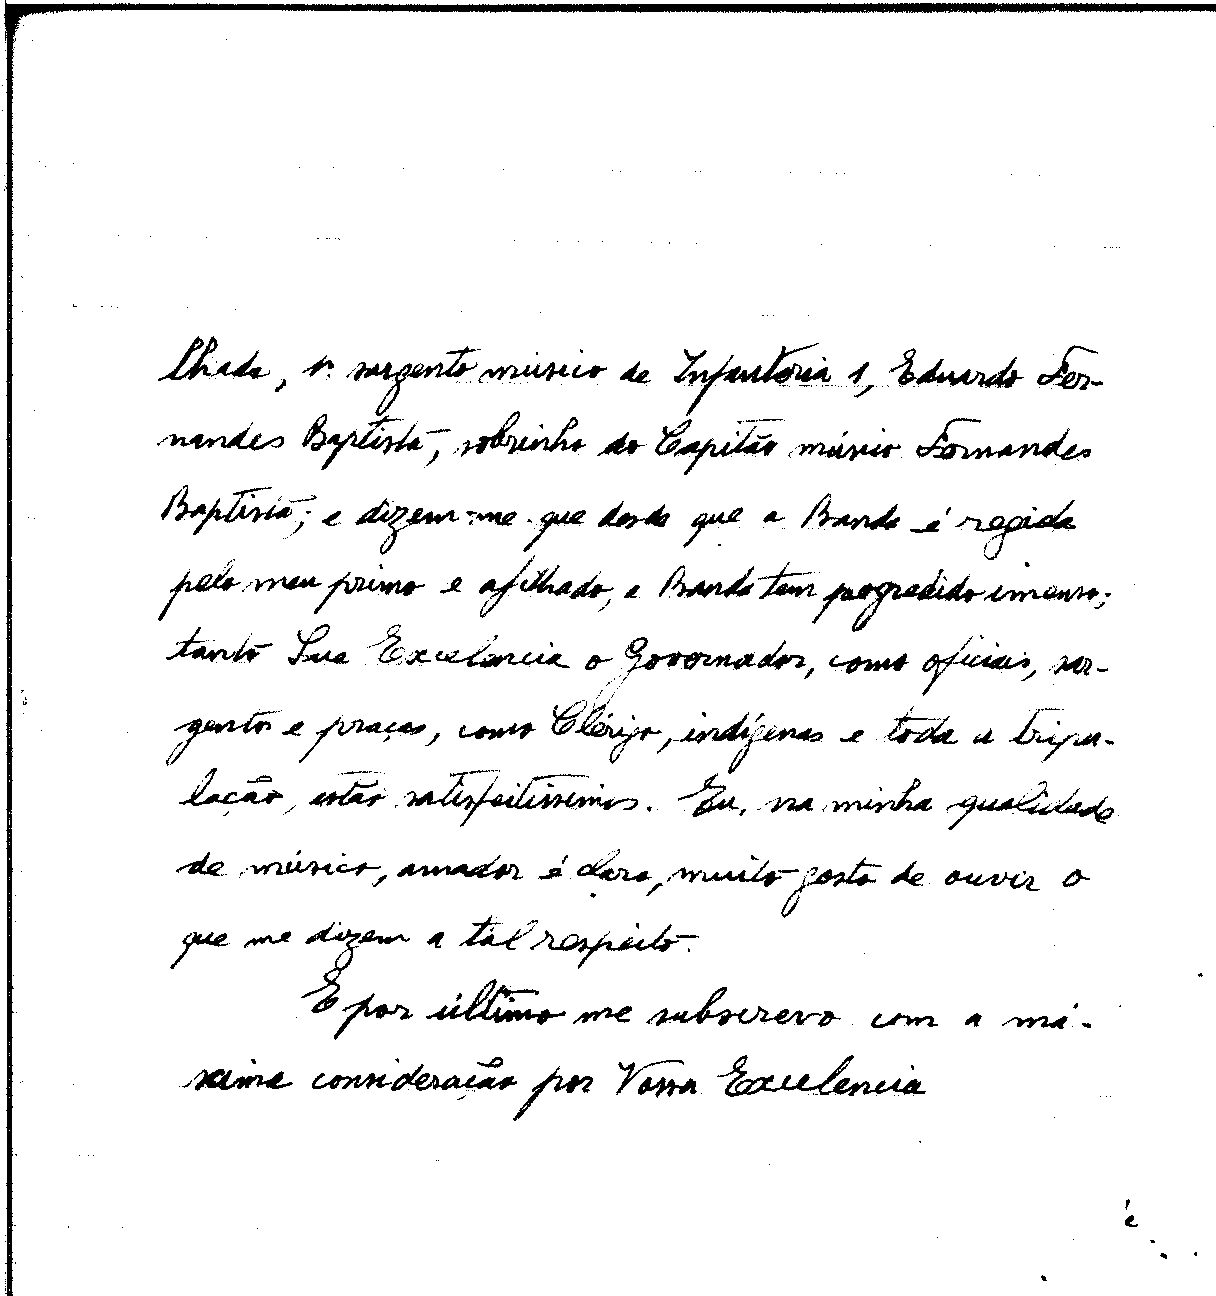 lhado, 1º sargento músico de Infantaria 1, Eduardo Fer-
nandes Baptista, sobrinho do Capitão músico Fernandes
Baptista; e dizem-me que desde que a Banda é regida
pelo meu primo e afilhado, a Banda tem pogredido imenso;
tanto Sua Excelencia o Governador, como oficiais, sar-
gentos e praças, como Clérigo, indígenas e toda a tripu-
lação, estão satisfeitissimos. Eu, na minha qualidade
de músico, amador é claro, muito gosto de ouvir o
que me dizem a tal respeito.
E por último me subscrevo com a má-
xima consideração por Vossa Excelencia
é